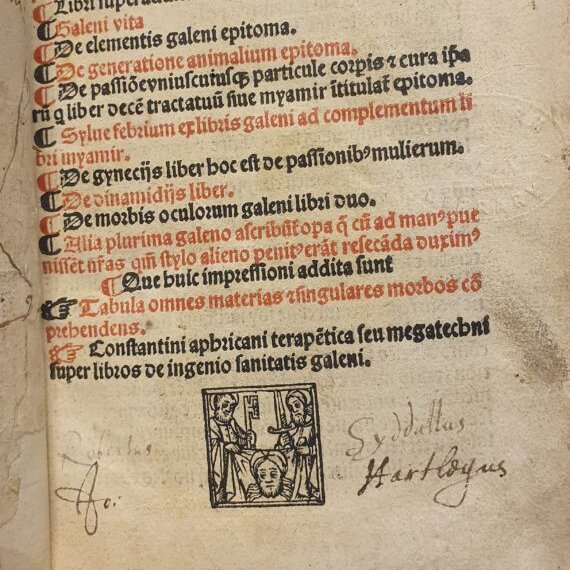 ¶ Libri super
¶ Galeni vita
¶ De elementis galeni epitoma.
¶ De generatione animalium epitoma.
¶ De passiōe vniuscuiusqꝫ particule corpis ⁊ cura ipa
rū q liber decē tractatuū siue myamir ītitulat epitoma.
¶ Sylue febrium ex libris galeni ad complementum li
bri myamir.
¶ De gynecijs liber hoc est de passionibꝰ mulierum.
¶ De dinamidijs liber.
¶ De morbis oculorum galeni libri duo.
¶ Alia plurima galeno ascribūt opa q̄ cū ad manꝰ pue
nissēt nr̄as qm̄ stylo alieno penitꝰ erāt resecāda duximꝰ
¶ Que huic impressioni addita sunt
☞ Tabula omnes materias ⁊ singulares morbos cō
prehendens.
☞ Constantini aphricani terapētica seu megatechni
super libros de ingenio sanitatis galeni.
Robertus
Syddallus
Hartlægus